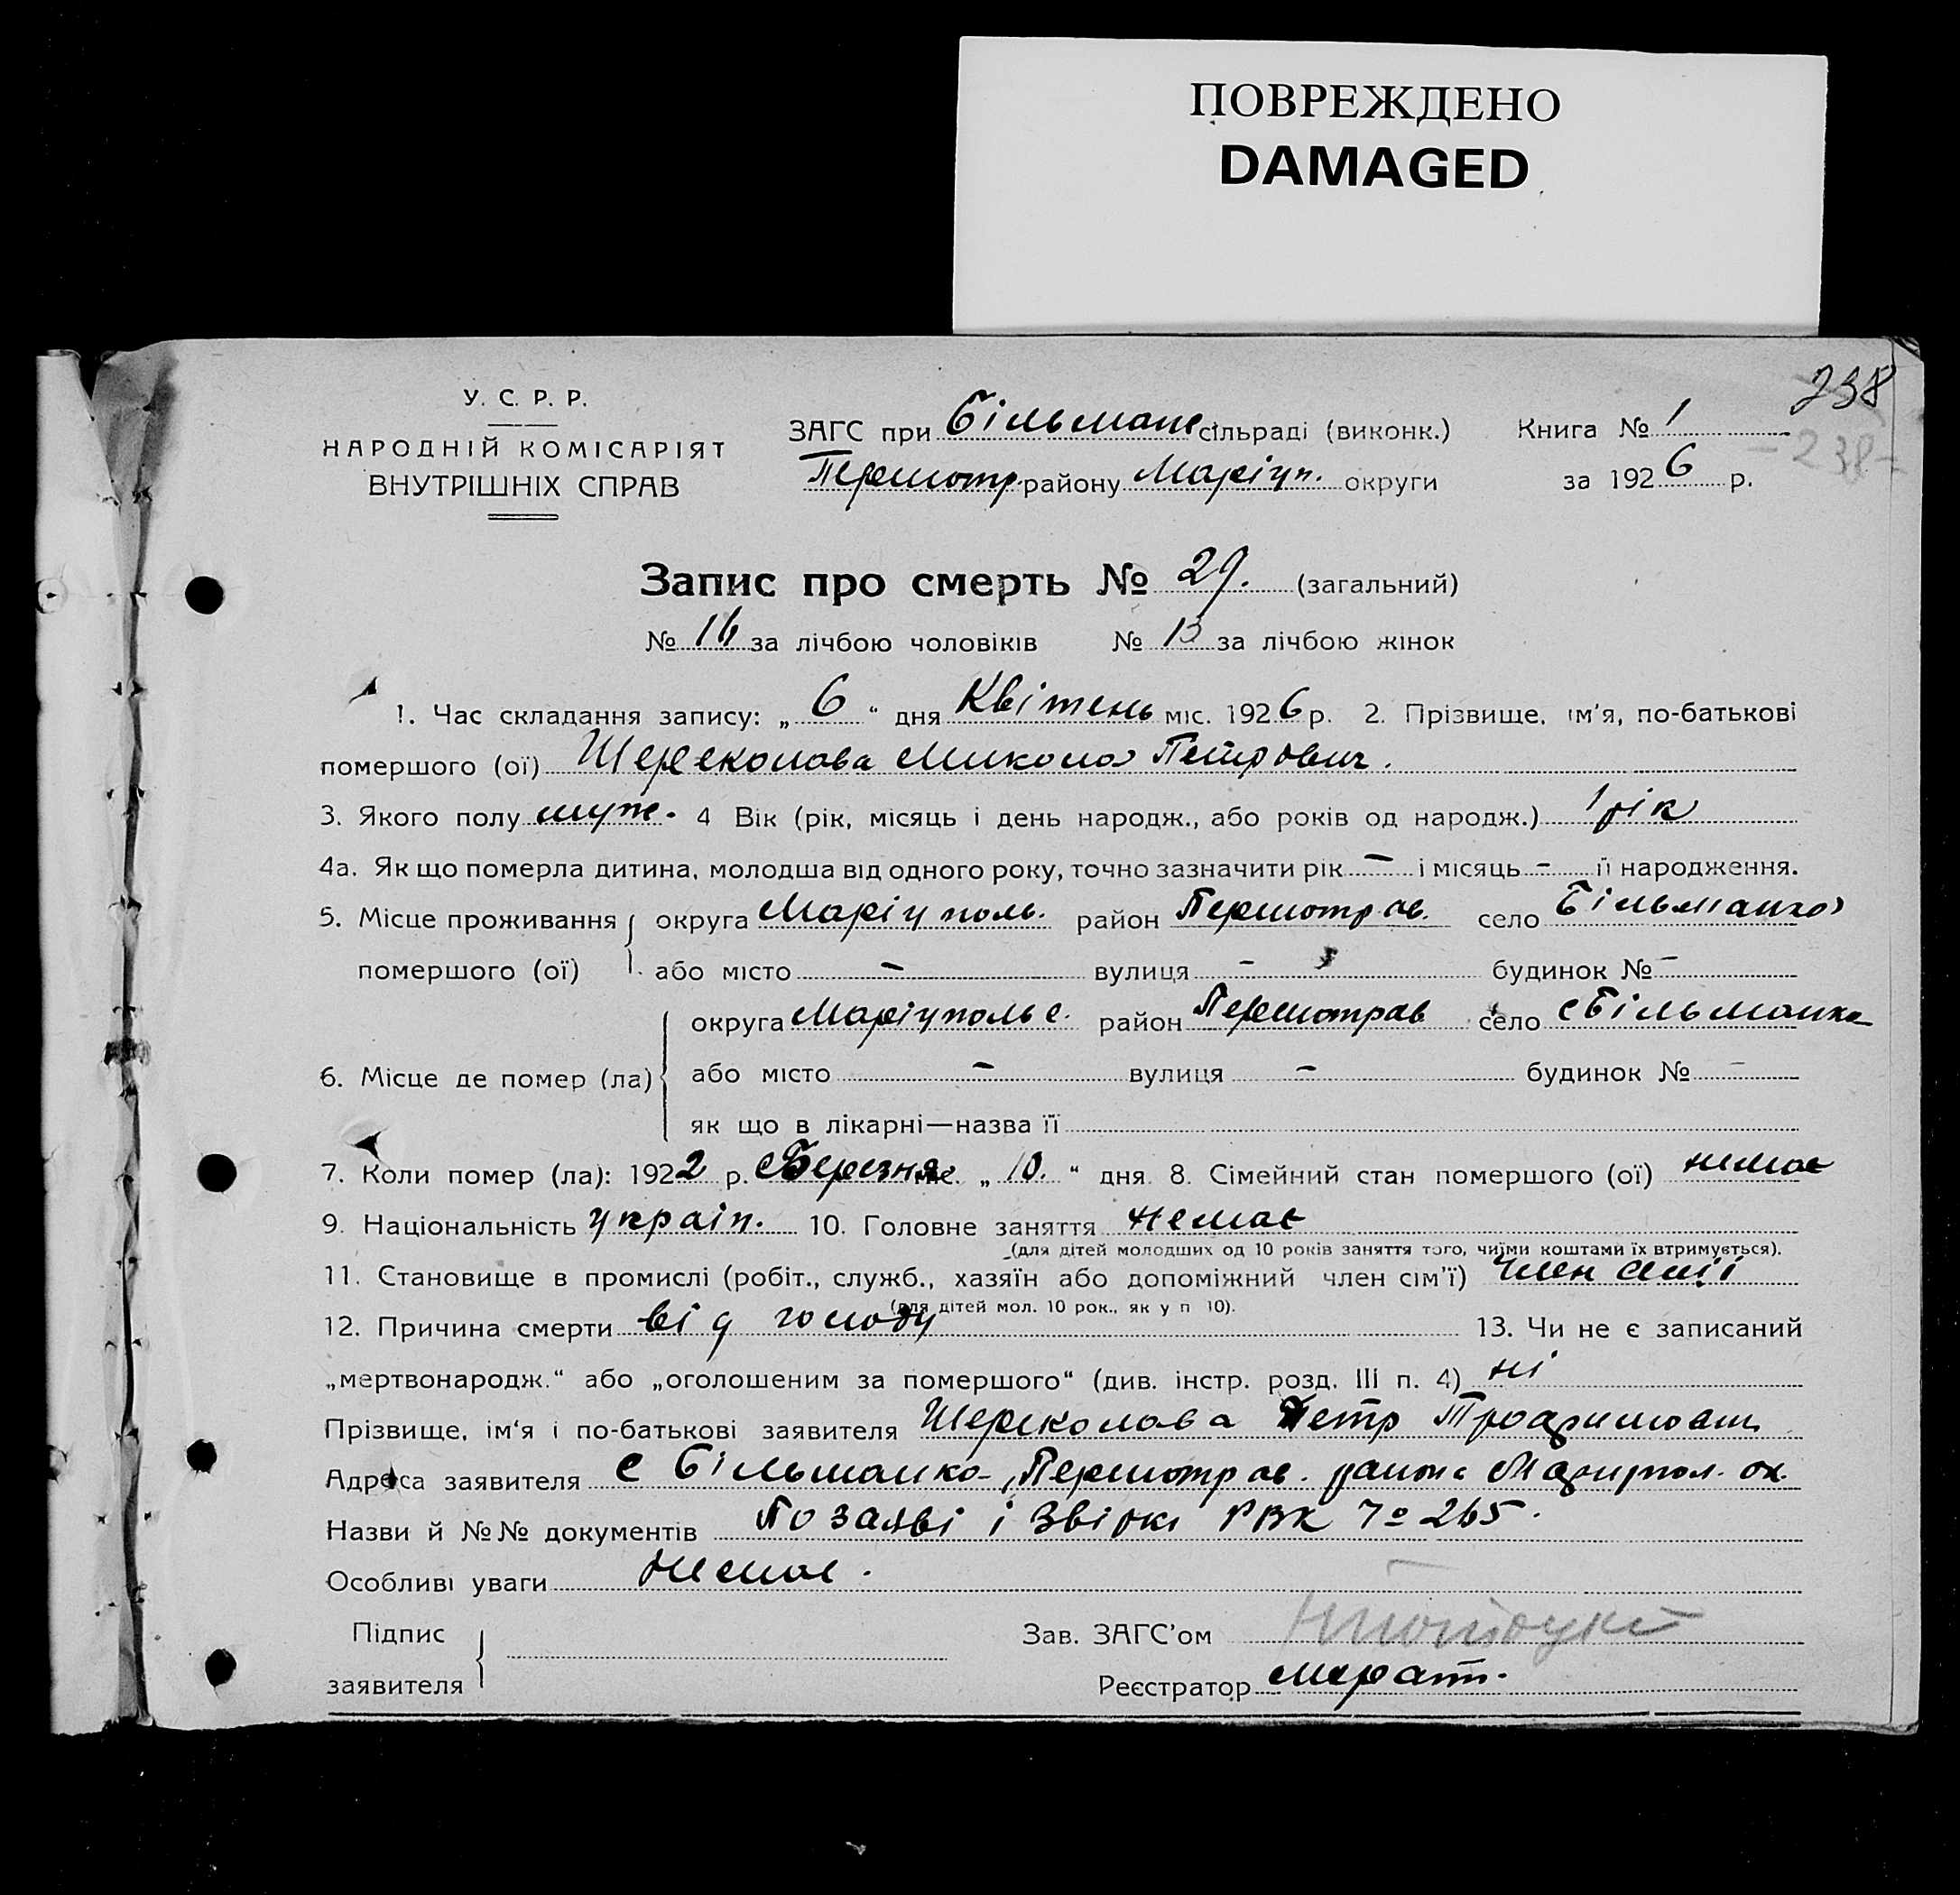 ПОВРЕЖДЕНО
DAMAGED
238
-238-
У. С. Р. Р.
НАРОДНІЙ КОМІСАРІЯТ
ВНУТРІШНІХ СПРАВ
ЗАГС при Більманс сільраді (виконк.) Книга № 1
Першотр. району Маріуп. округи за 1926 р.
Запис про смерть № 29. (загальний)
№ 16 за лічбою чоловіків № 13 за лічбою жінок
1. Час складання запису: „ 6 “ дня Квітень міс. 1926 р. 2. Прізвище, ім'я, по-батькові
помершого (ої) Шереколава Микола Петрович.
3. Якого полу муж. 4 Вік (рік, місяць і день народж., або років од народж.) 1 рік
4а. Як що померла дитина, молодша від одного року, точно зазначити рік – і місяць – її народження.
5. Місце проживання округа Маріуполь. район Першотрав. село Більманка
помершого (ої) або місто – вулиця – будинок № –
округа Маріупольс. район Першотрав село с Більманка
6. Місце де помер (ла) або місто – вулиця – будинок № –
як що в лікарні—назва її
7. Коли помер (ла): 1922 р. Березня міс. „ 10. “ дня. 8. Сімейний стан помершого (ої) немає
9. Національність україн. 10. Головне заняття немає
(для дітей молодших од 10 років заняття того, чиїми коштами їх втримується).
11. Становище в промислі (робіт., служб., хазяїн або допоміжний член сім'ї) член сімї
(для дітей мол. 10 рок., як у п 10).
12. Причина смерти від голоду 13. Чи не є записаний
„мертвонародж.“ або „оголошеним за помершого“ (див. інстр. розд. III п. 4) ні
Прізвище, ім'я і по-батькові заявителя Шереколава Петр
Адреса заявителя с Більманка, Першотрав. района Мариупол. ок.
Назви й №№ документів По заяві і Звірки РВК № 265.
Особливі уваги Немає.
Підпис
заявителя
Зав. ЗАГС'ом
Реєстратор